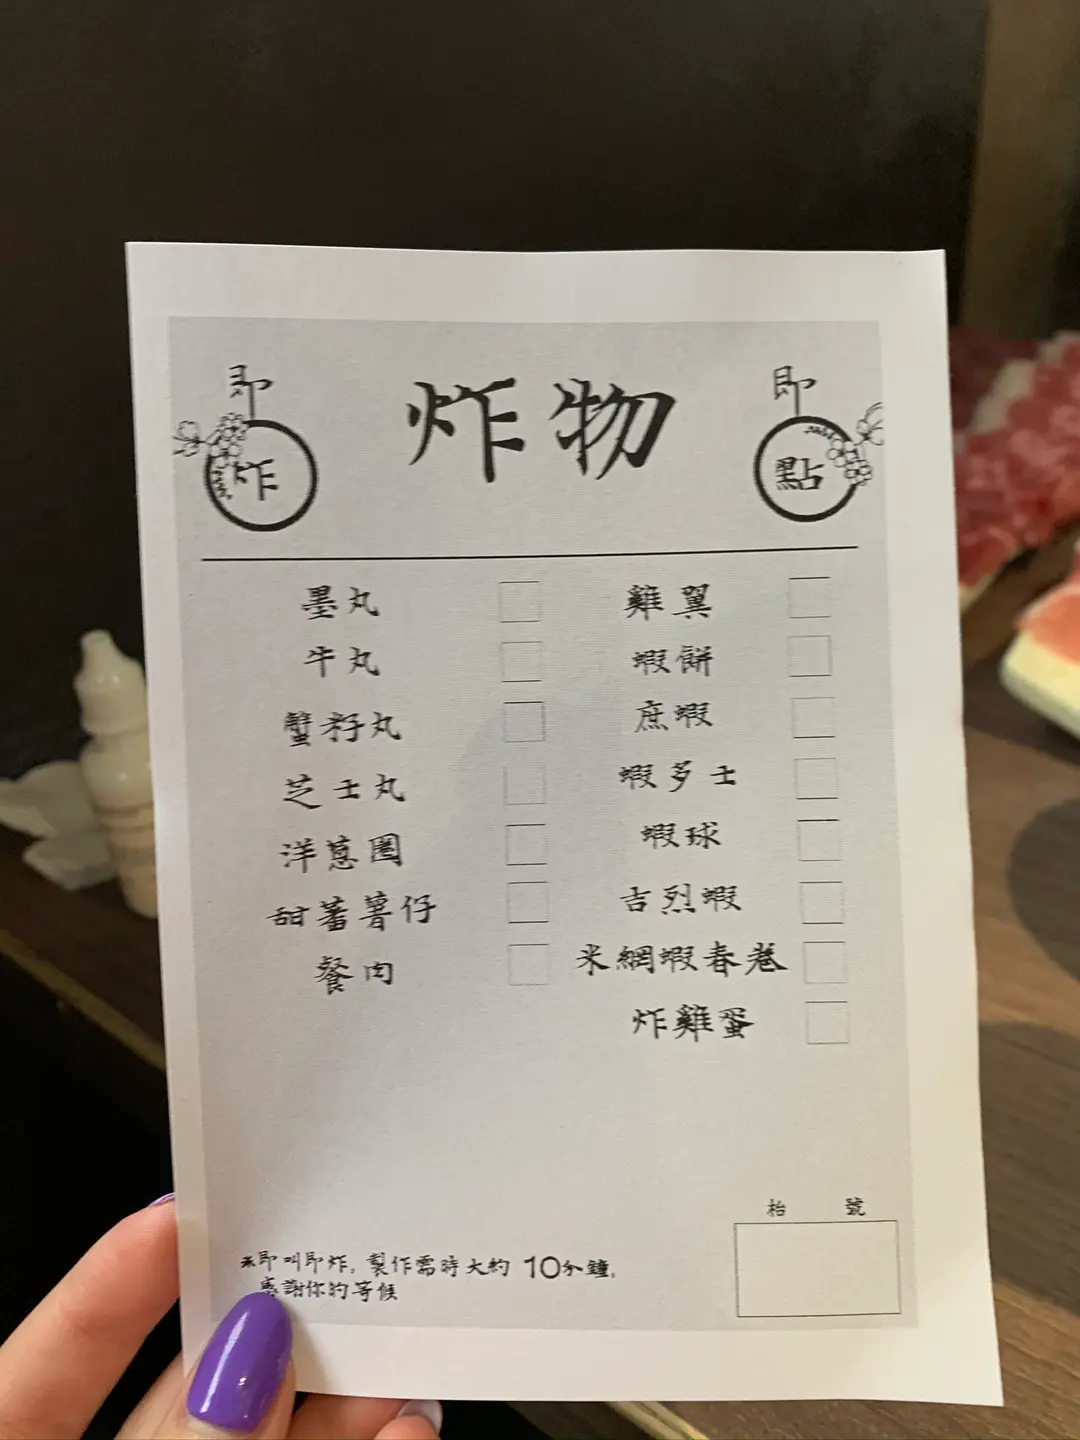 即炸
炸物
即點
墨丸
牛丸
蟹籽丸
芝士丸
洋蔥圈
甜蕃薯仔
餐肉
雞翼
蝦餅
庶蝦
蝦多士
蝦球
吉烈蝦
米網蝦春卷
炸雞蛋
枱 號
※即叫即炸,製作需時大約10分鐘,
感謝你的等候